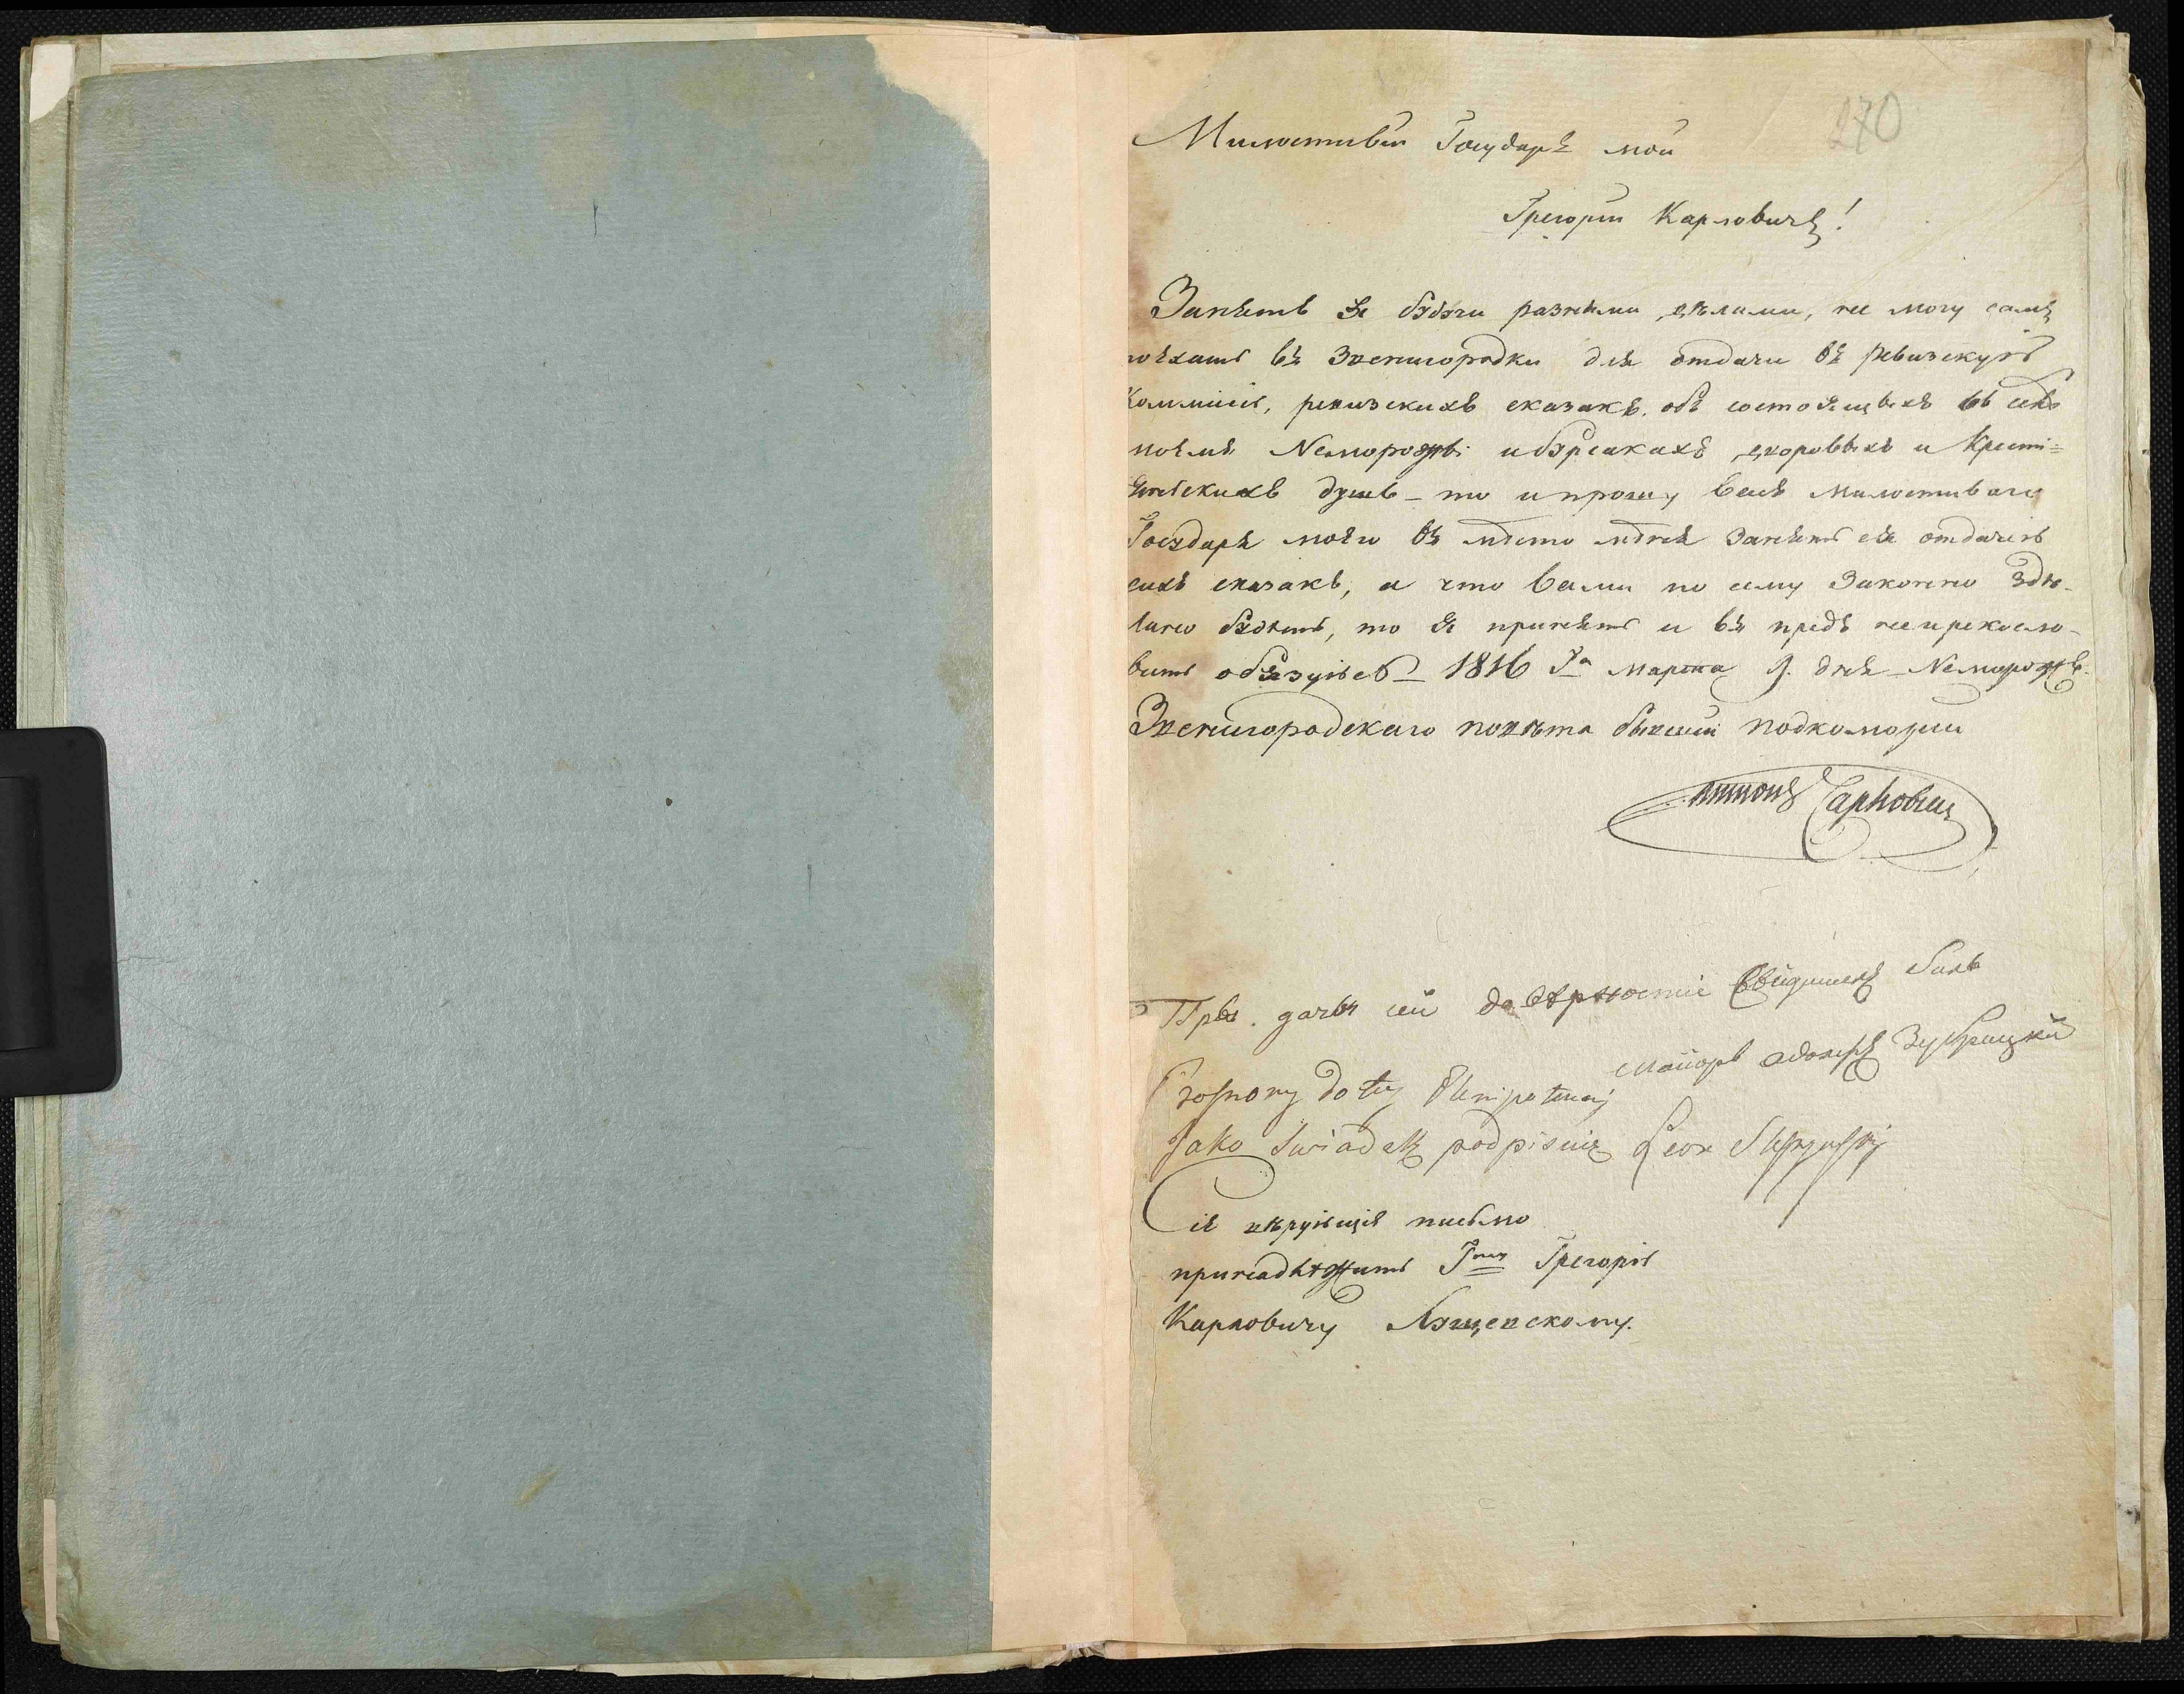 270
Милостивій Государь мой
Грегорій Карловичъ!
Занятъ я бѹдѹчи разными дѣлами, не могу самъ
поѣхать въ Звенигородки для отдачи въ Ревизскую
Коммисію, ревизскихъ сказакъ объ состоящыхъ въ селѣ
моемъ Неморожѣ дворовыхъ и Кресті=
янскихъ душъ – то и прошу васъ милостиваго
Госѹдаря моего въ мѣсто меня занять ся отдачею
сихъ сказакъ, а что вами по сему законно здѣ-
лано бѹдетъ, то я принять и въ предь не прекосло-
вить обязуюсь – 1816 Га Марта 9. дня – Неморожъ.
Звенигородскаго повѣта бывшій подкоморій
Антонъ
При дачи сей доверености свидителъ билъ
Маиоръ Зубрицкий
Proszony do tey Plenipotencyi
Jako Swiadek podpisuię Leon
Сіе вѣрующіе письмо
принадлежитъ Гну Грегорію
Карловичу Лѹщевскому.